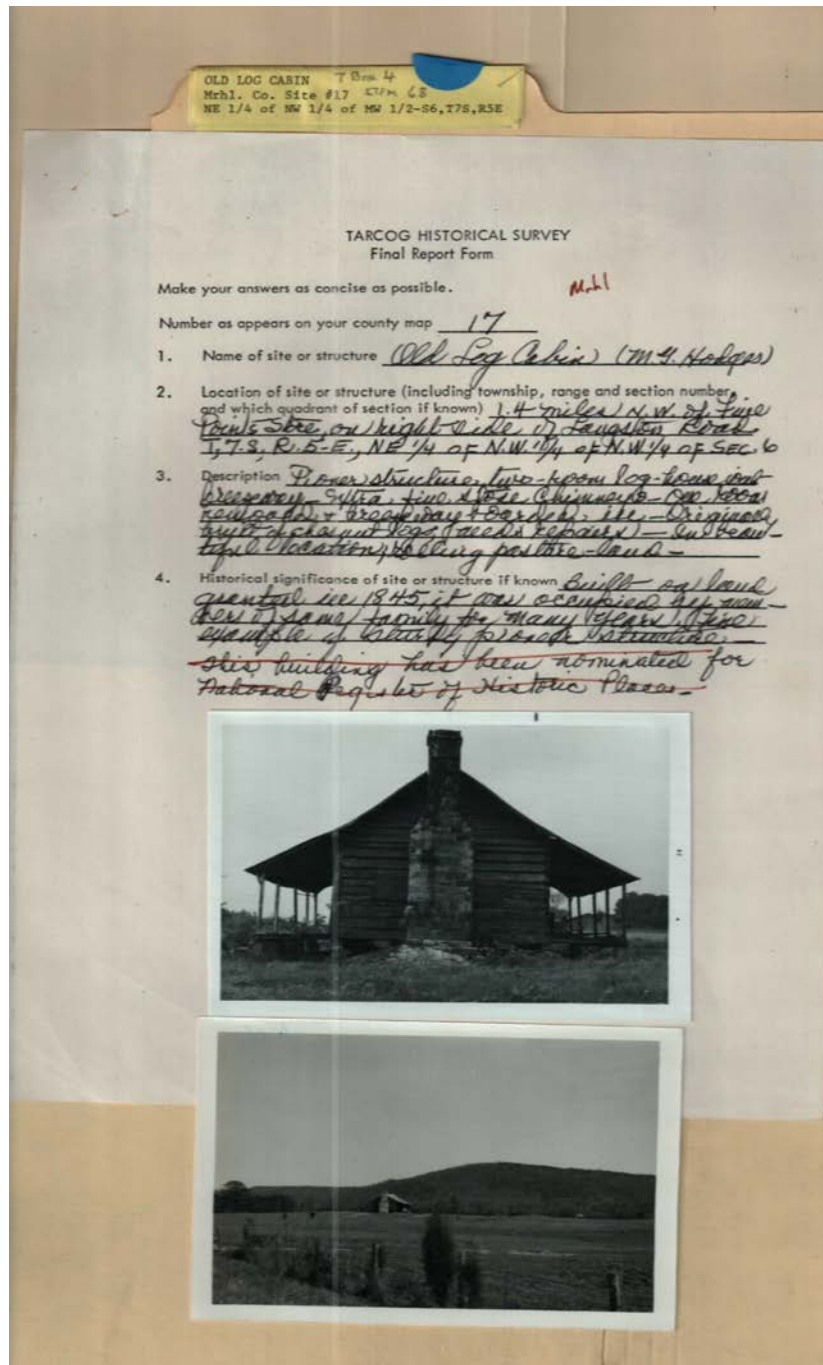 OLD LOG CABIN T Box 4
Mrhl. Co. Site #17 68
NE 1/4 of NW 1/4 of MW 1/2-S6,T7S,R5E
TARCOG HISTORICAL SURVEY
Final Report Form
Make your answers as concise as possible.
Mrhl
Number as appears on your county map 17
1. Name of site or structure (Old Log Cabin) (M.G. Hodges)
2. Location of site or structure (including township, range and section number,
and which quadrant of section if known) 1.4 miles N.W. of Five
Points Store, on right side of Langston Road
T, 7-S, R. 5-E., NE 1/4 OF N.W. 1/4 OF N.W 1/4 OF SEC. 6
3. Description Pioneer structure, two-room log-house
breezeway - Extra fine stone Chimneys - One room
remodeled + breezeway boarded - Originally
built of chestnut logs (needs repairs) - In beau-
tiful location, rolling pasture-land -
4. Historical significance of site or structure if known Built on land
granted in 1845, it was occupied by mem-
bers of same family for many years. Fine
example of sturdy pioneer structure -
This building has been nominated for
National Register of Historic Places -